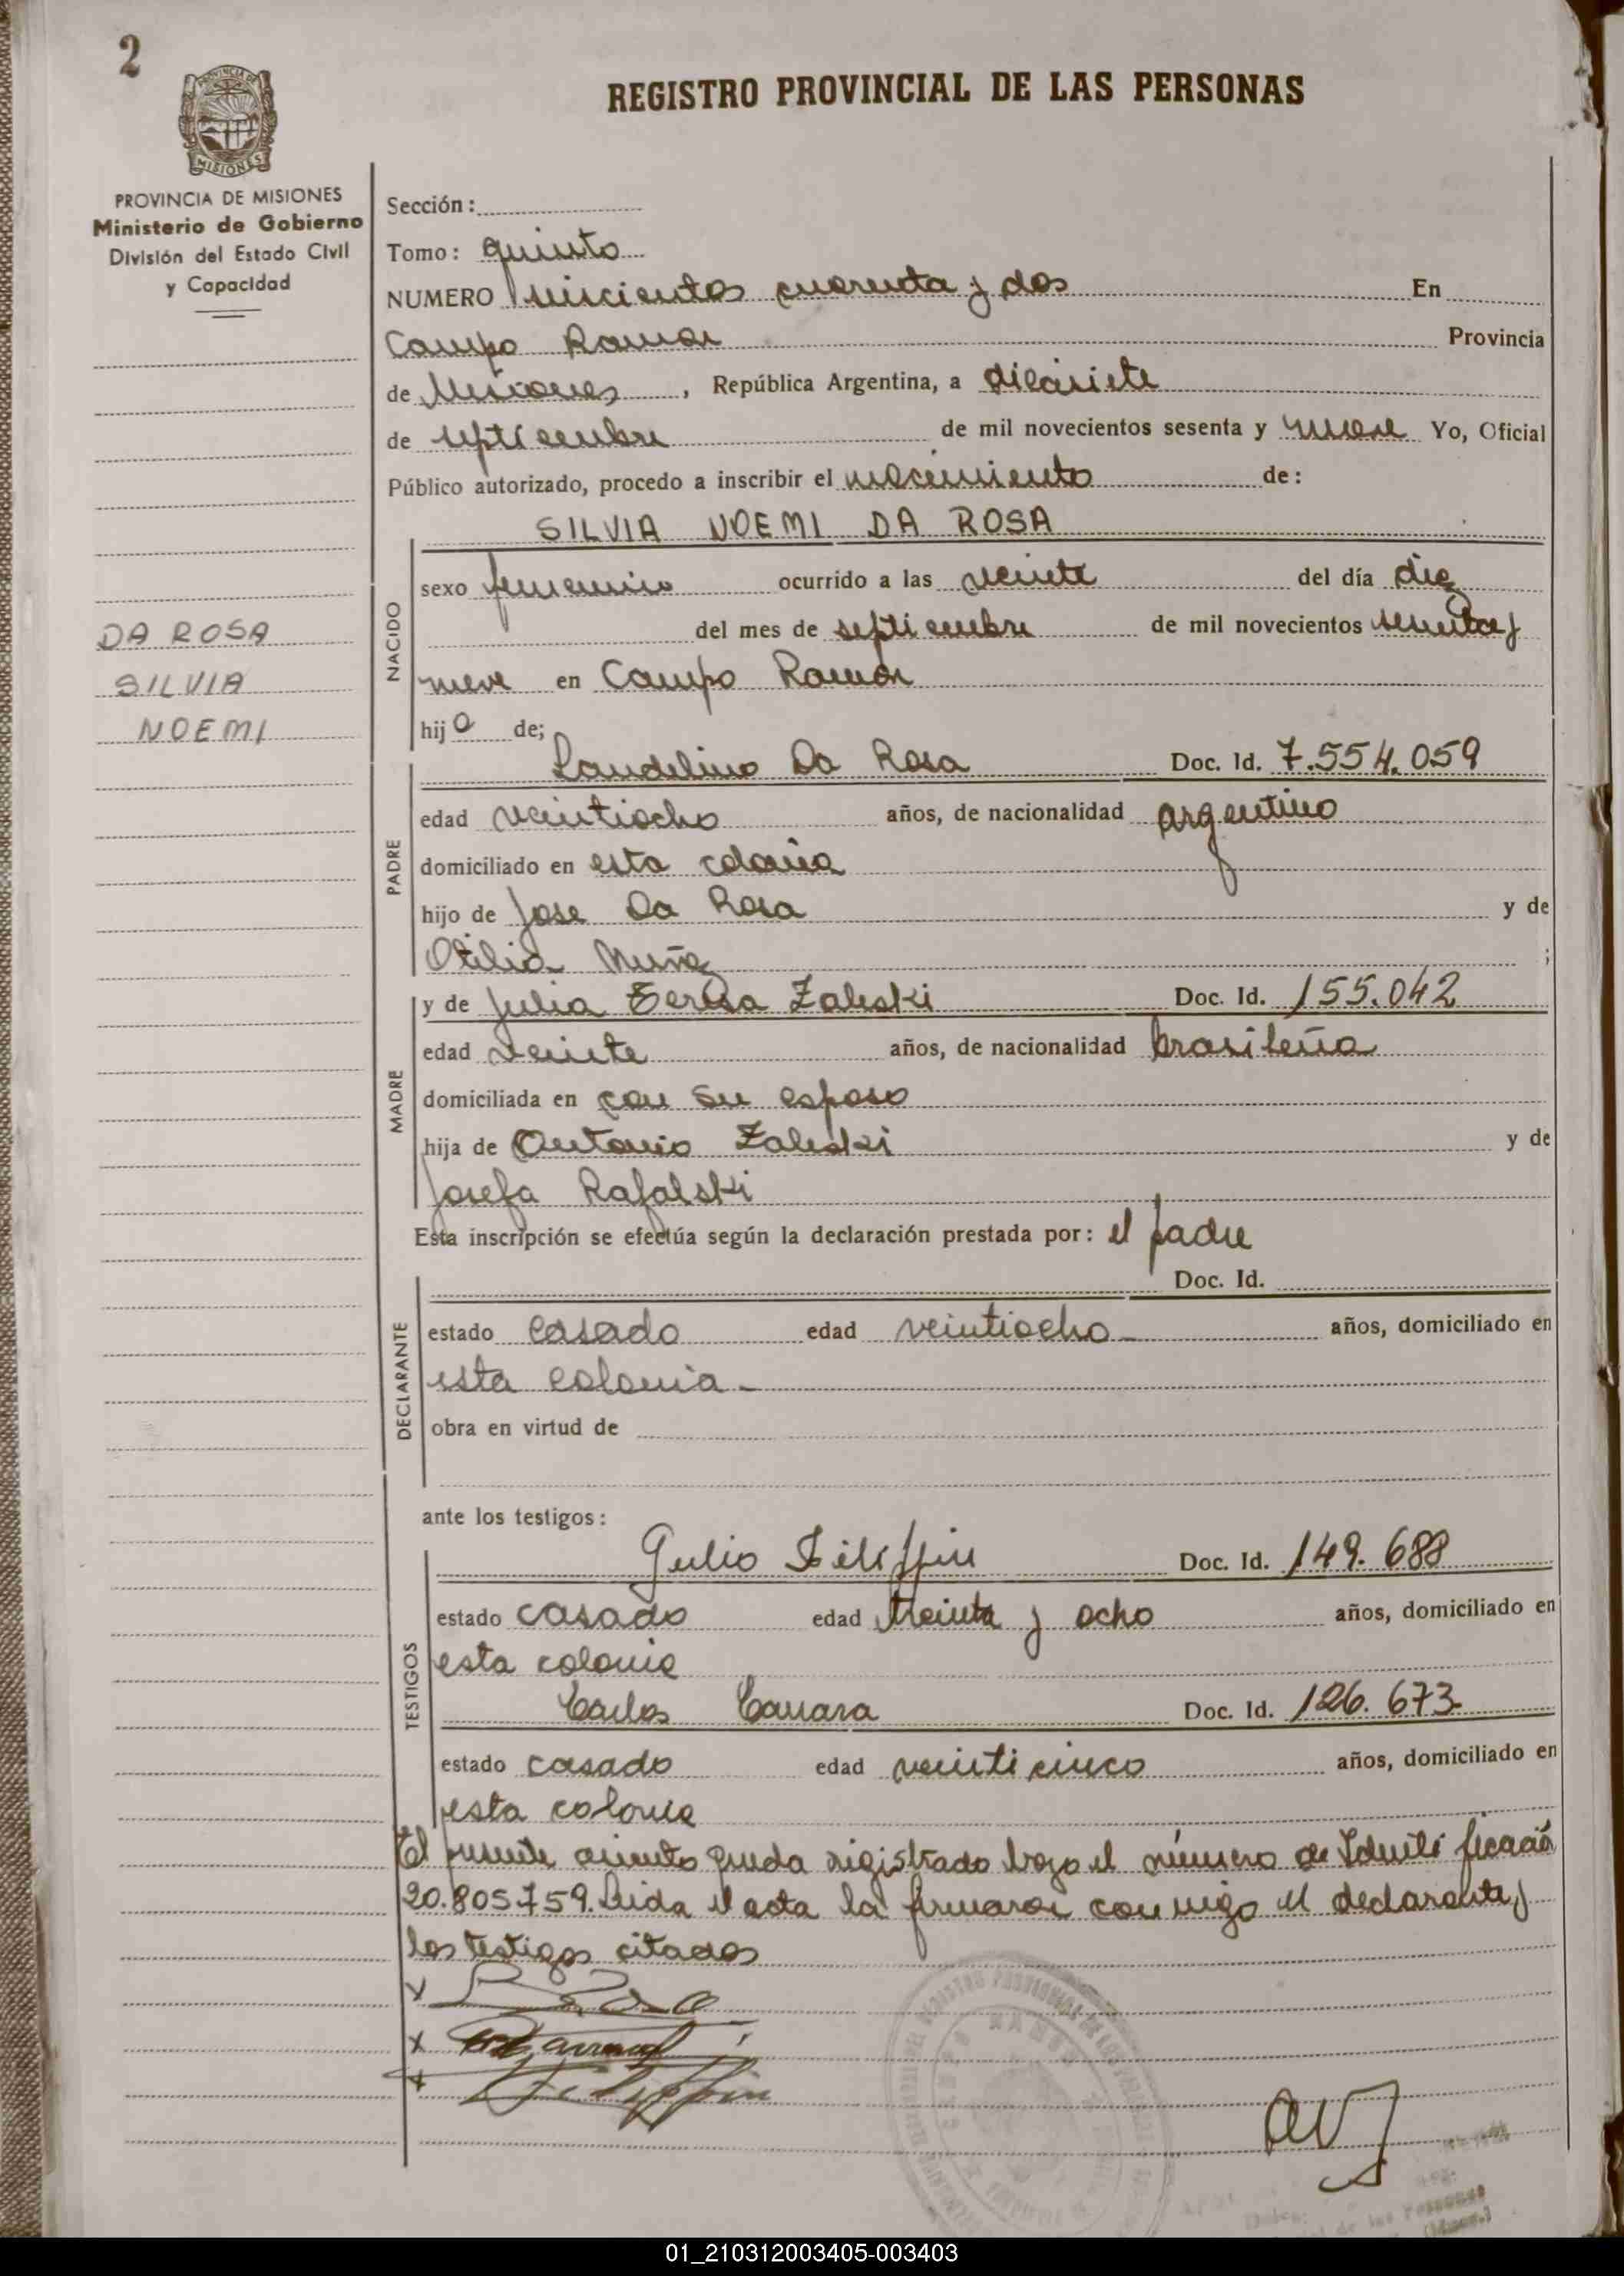 2
PROVINCIA DE
MISIONES
REGISTRO PROVINCIAL DE LAS PERSONAS
PROVINCIA DE MISIONES
Ministerio de Gobierno
División del Estado Civil
y Capacidad
DA ROSA
SILVIA
NOEMI
Sección:
Tomo: quinto
NUMERO seiscientos cuarenta y dos En
Campo Ramón Provincia
de Misiones, República Argentina, a diecisiete
de septiembre de mil novecientos sesenta y nueve Yo, Oficial
Público autorizado, procedo a inscribir el nacimiento de:
SILVIA NOEMI DA ROSA
NACIDO
sexo femenino ocurrido a las veinte del día diez
del mes de septiembre de mil novecientos sesenta y
nueve en Campo Ramón
hij a de;
PADRE
Laudelino Da Rosa Doc. Id. 7.554.059
edad veintiocho años, de nacionalidad argentino
domiciliado en esta colonia
hijo de Jose Da Rosa y de
Otilia Muñoz ;
MADRE
y de Julia Teresa Zaleski Doc. Id. 155.042
edad veinte años, de nacionalidad brasileña
domiciliada en con su esposo
hija de Antonio Zaleski y de
Josefa Rafalski
Esta inscripción se efectúa según la declaración prestada por: el padre
Doc. Id.
DECLARANTE
estado casado edad veintiocho años, domiciliado en
esta colonia
obra en virtud de
ante los testigos:
TESTIGOS
Julio Filippin Doc. Id. 149.688
estado casado edad treinta y ocho años, domiciliado en
esta colonia
Carlos Carrara Doc. Id. 126.673
estado casado edad veinticinco años, domiciliado en
esta colonia
El presente asiento queda registrado bajo el número de Identificación
20.805.759. Leida el acta la firmaron conmigo el declarante y
los testigos citados
Filippin
01_210312003405-003403